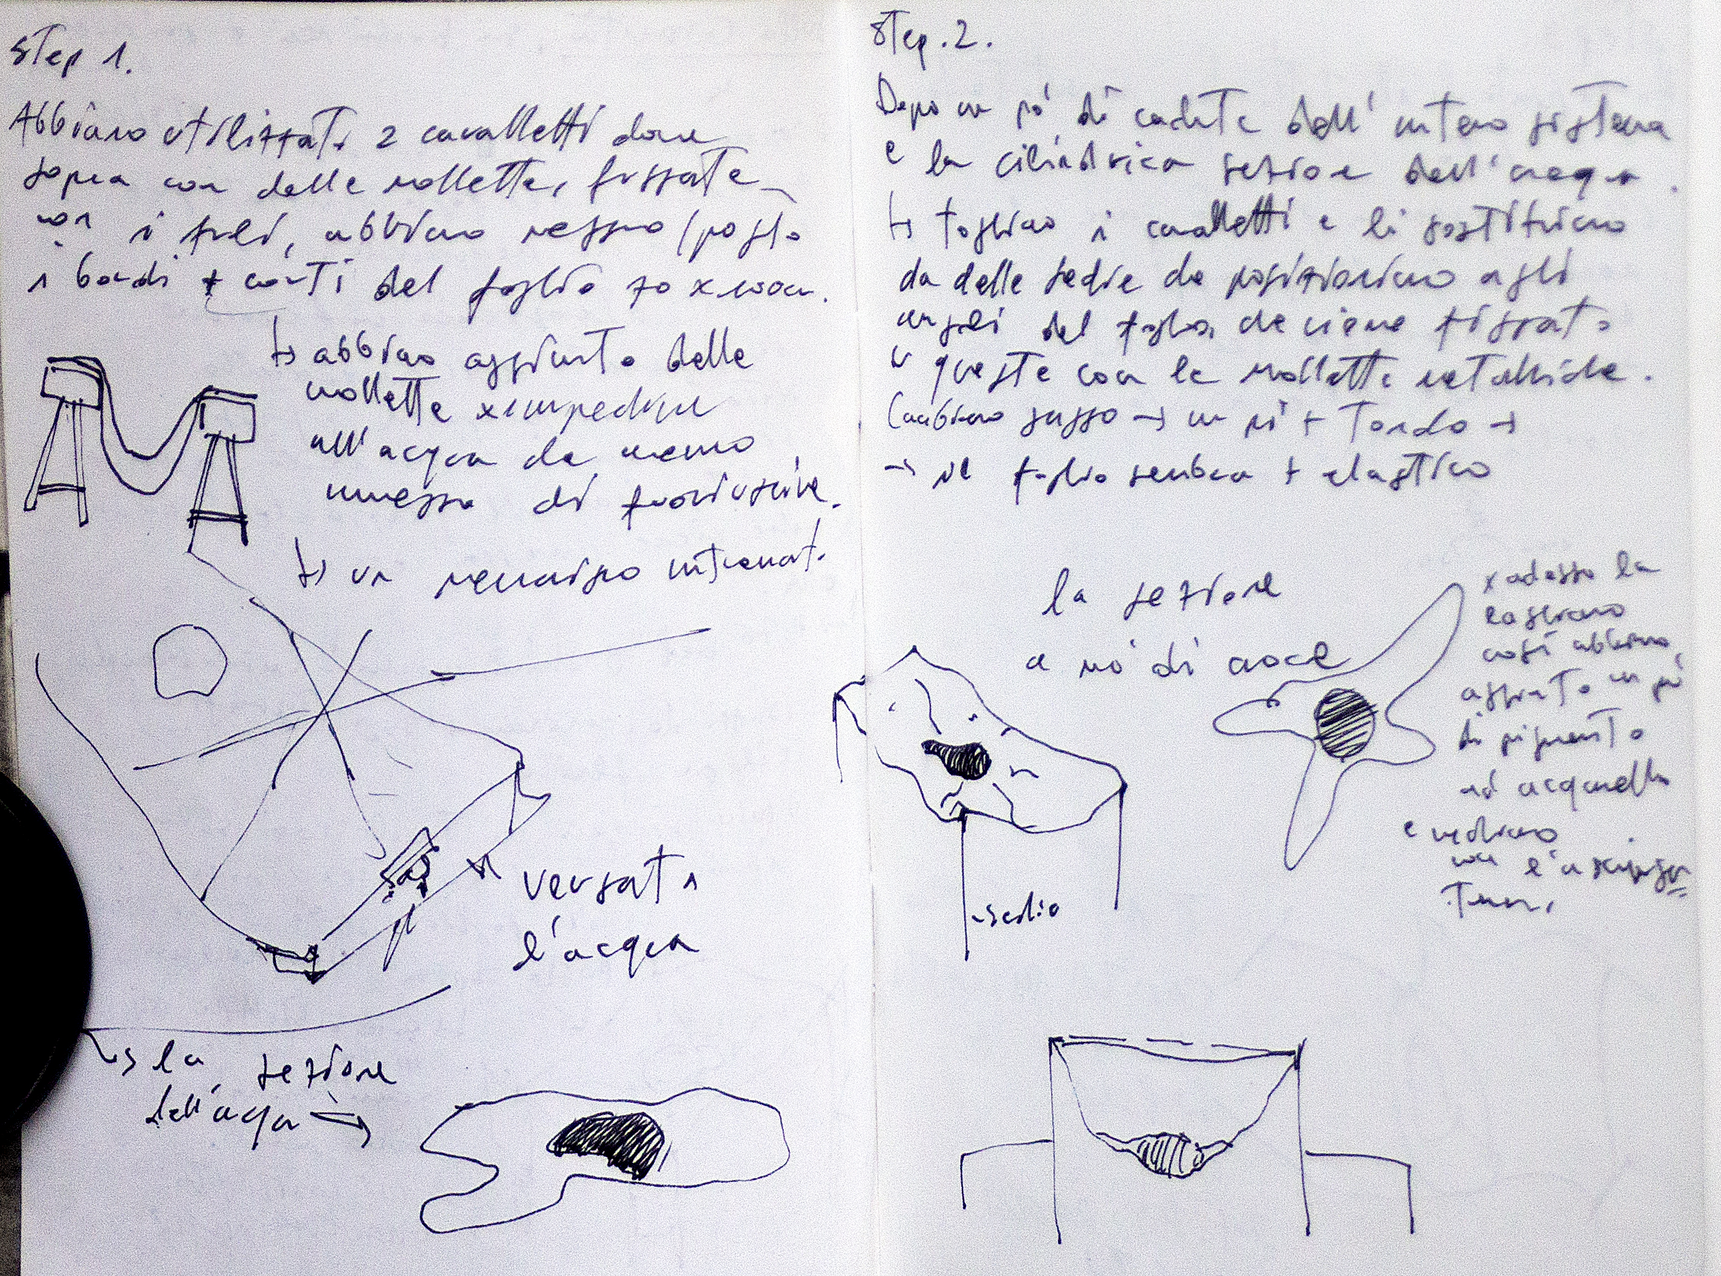 Step 1.
Abbiamo utilizzato 2 cavalletti dove
sopra con delle mollette, fissate
con i fili, abbiamo messo/poggiato
i bordi + corti del foglio 70 x 100cm.
↳ abbiamo aggiunto delle
mollette x impedire
all'acqua da
di fuoriuscire.
↳ un
versato
l'acqua
↳ la sezione
dell'acqua →
Step. 2.
Dopo un pò di cadute dell'intero sistema
e la cilindrica sezione dell'acqua.
↳ togliamo i cavalletti e li sostituiamo
da delle sedie che posizioniamo agli
angoli del foglio, che viene fissato
a queste con le mollette metalliche.
Cambiamo sasso → un pò + tondo →
→ il foglio sembra + elastico
la sezione
a mò di croce
x adesso la
lasciamo
così abbiamo
aggiunto un pò
di pigmento
ad acquarello
e vediamo
con l'asciuga-
tura.
sedia